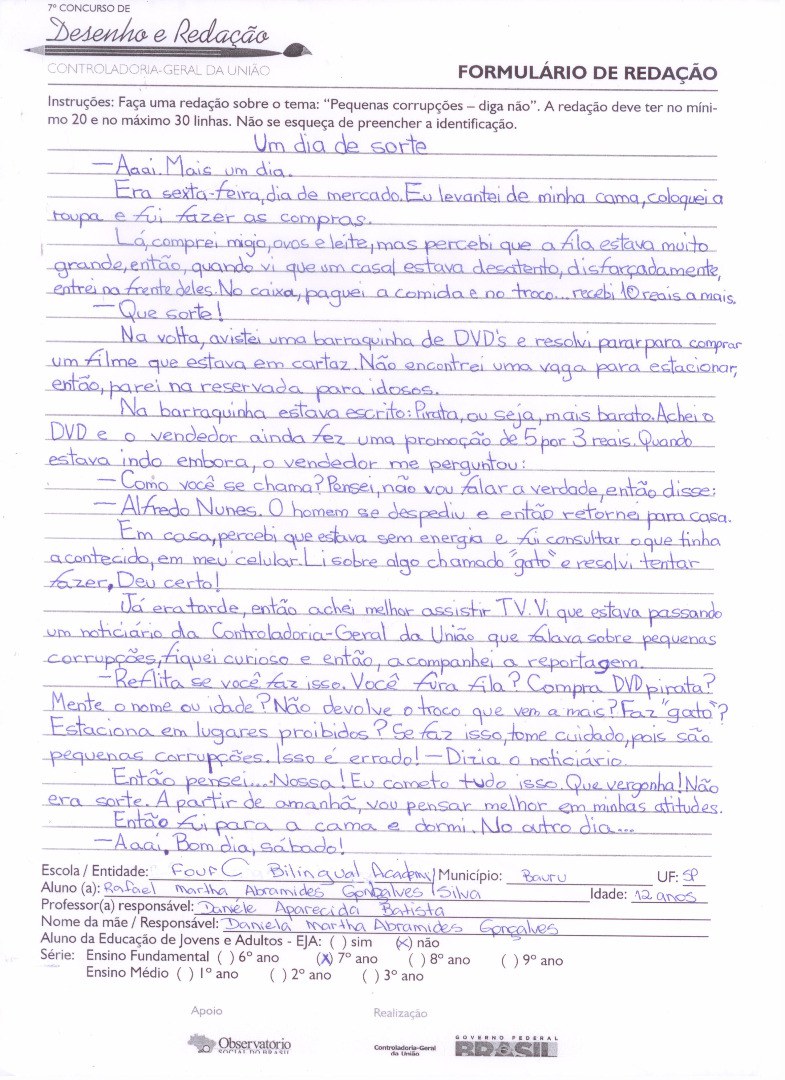 7º CONCURSO DE
Desenho e Redação
CONTROLADORIA-GERAL DA UNIÃO
FORMULÁRIO DE REDAÇÃO
Instruções: Faça uma redação sobre o tema: “Pequenas corrupções – diga não”. A redação deve ter no míni-
mo 20 e no máximo 30 linhas. Não se esqueça de preencher a identificação.
Um dia de sorte
— Aaai. Mais um dia.
Era sexta-feira, dia de mercado. Eu levantei de minha cama, coloquei a
roupa e fui fazer as compras.
Lá, comprei migo, ovos e leite, mas percebi que a fila estava muito
grande, então, quando vi que um casal estava desatento, disfarçadamente,
entrei na frente deles. No caixa, paguei a comida e no troco... recebi 10 reais a mais.
— Que sorte!
Na volta, avistei uma barraquinha de DVD's e resolvi parar para comprar
um filme que estava em cartaz. Não encontrei uma vaga para estacionar,
então, parei na reservada para idosos.
Na barraquinha estava escrito: Pirata, ou seja, mais barato. Achei o
DVD e o vendedor ainda fez uma promoção de 5 por 3 reais. Quando
estava indo embora, o vendedor me perguntou:
— Como você se chama? Pensei, não vou falar a verdade, então disse:
— Alfredo Nunes. O homem se despediu e então retornei para casa.
Em casa, percebi que estava sem energia e fui consultar o que tinha
acontecido, em meu celular. Li sobre algo chamado "gato" e resolvi tentar
fazer, Deu certo!
Já era tarde, então achei melhor assistir TV. Vi que estava passando
um noticiário da Controladoria-Geral da União que falava sobre pequenas
corrupções, fiquei curioso e então, acompanhei a reportagem.
— Reflita se você faz isso. Você fura fila? Compra DVD pirata?
Mente o nome ou idade? Não devolve o troco que vem a mais? Faz "gato"?
Estaciona em lugares proibidos? Se faz isso, tome cuidado, pois são
pequenas corrupções. Isso é errado! — Dizia o noticiário.
Então pensei... - Nossa! Eu cometo tudo isso. Que vergonha! Não
era sorte. A partir de amanhã, vou pensar melhor em minhas atitudes.
Então fui para a cama e dormi. No outro dia...
— Aaai. Bom dia, sábado!
Escola / Entidade: Four C Bilingual Academy Município: Bauru UF: SP
Aluno (a): Rafael Martha Abramides Gonçalves Silva Idade: 12 anos
Professor(a) responsável: Daniéle Aparecida Batista
Nome da mãe / Responsável: Daniela Martha Abramides Gonçalves
Aluno da Educação de Jovens e Adultos - EJA: ( ) sim (x) não
Série: Ensino Fundamental ( ) 6º ano (X) 7º ano ( ) 8º ano ( ) 9º ano
Ensino Médio ( ) 1º ano ( ) 2º ano ( ) 3º ano
Apoio Realização
Observatorio
SOCIAL DO BRASIL
Controladoria-Geral
da União
GOVERNO FEDERAL
BRASIL